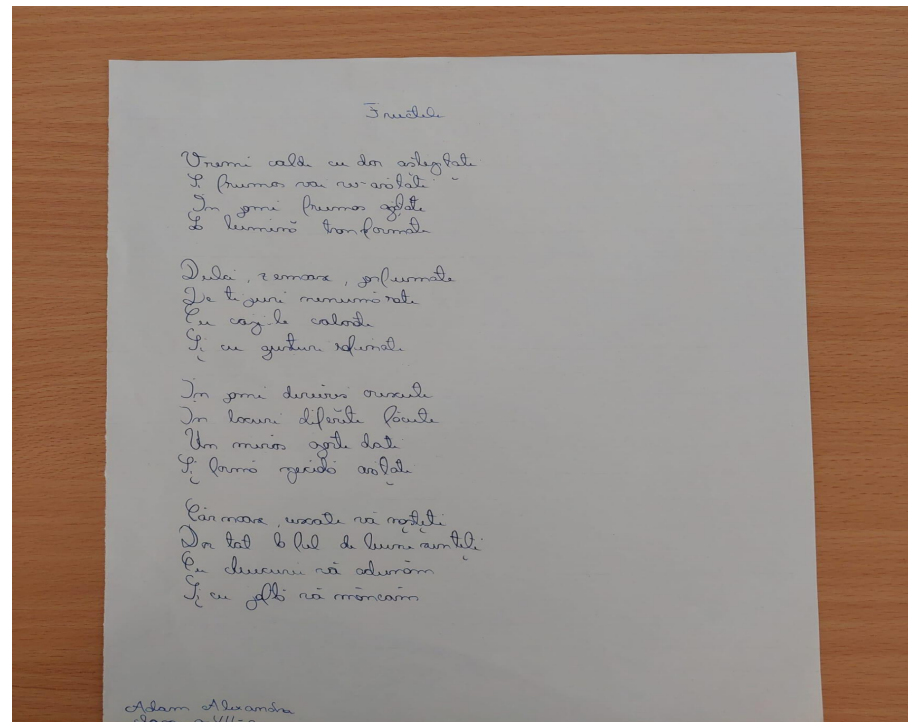 Fructele
Vremi calde cu dor așteptate
Și frumos voi ne-arătăti
În pomi frumos agățate
La lumină transformate
Dulci, zemoase, parfumate
De tipuri nenumărate
Cu cojile colorate
Și cu gusturi rafinate
În pomi diverși crescute
În locuri diferite făcute
Un miros aparte dati
Și formă specifică arătati
Cărnoase, uscate vă nașteți
Dar tot la fel de bune sunteți
Cu bucurii vă adunăm
Și cu poftă vă mâncăm
Adam Alexandra
clasa a VII-a